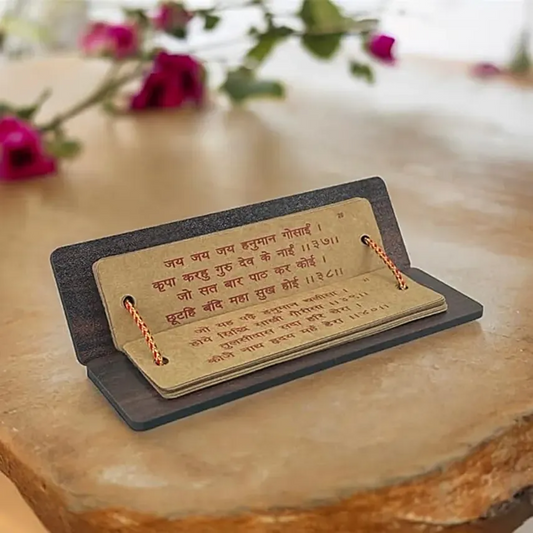 जय जय जय हनुमान गोसाईं ।
कृपा करहु गुरु देव के नाईं ।।३७।।
जो सत बार पाठ कर कोई ।
छूटहि बंदि महा सुख होई ।।३८।।
जो यह पढ़े हनुमान चलीसा ।
होये सिद्धि साखी गौरीसा ।।३९।।
तुलसीदास सदा हरि चेरा ।
कीजै नाथ हृदय महँ डेरा ।।४०।।